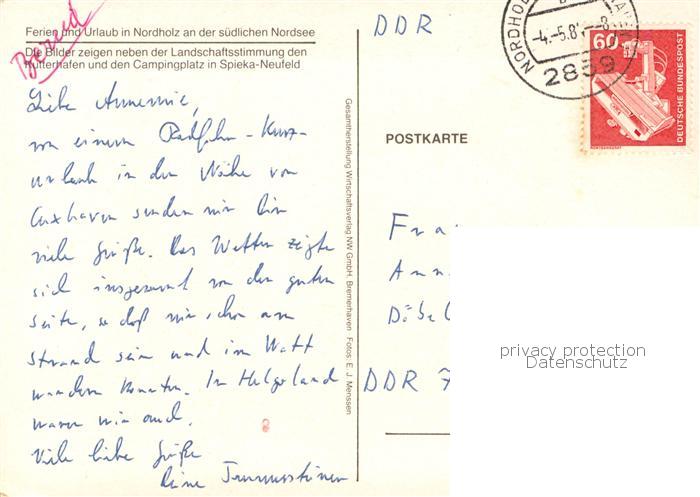 Ferien und Urlaub in Nordholz an der südlichen Nordsee
Die Bilder zeigen neben der Landschaftsstimmung den
Kutterhafen und den Campingplatz in Spieka-Neufeld
Liebe Annemie,
von einem Radfahr-Kurz-
urlaub in der Nähe von
Cuxhaven senden wir Dir
viele Grüße. Das Wetter zeigte
sich insgesamt von der guten
Seite, so daß wir schon am
Strand sein und im Watt
wandern konnten. In Helgoland
waren wir auch.
Viele liebe Grüße
Deine
Gesamtherstellung Wirtschaftsverlag NW GmbH, Bremerhaven Fotos: E. J. Menssen
DDR
NORDHOL
-4.-5.8
2859
60
DEUTSCHE BUNDESPOST
POSTKARTE
Fra
Ann
Döbel
DDR 7
privacy protection
Datenschutz